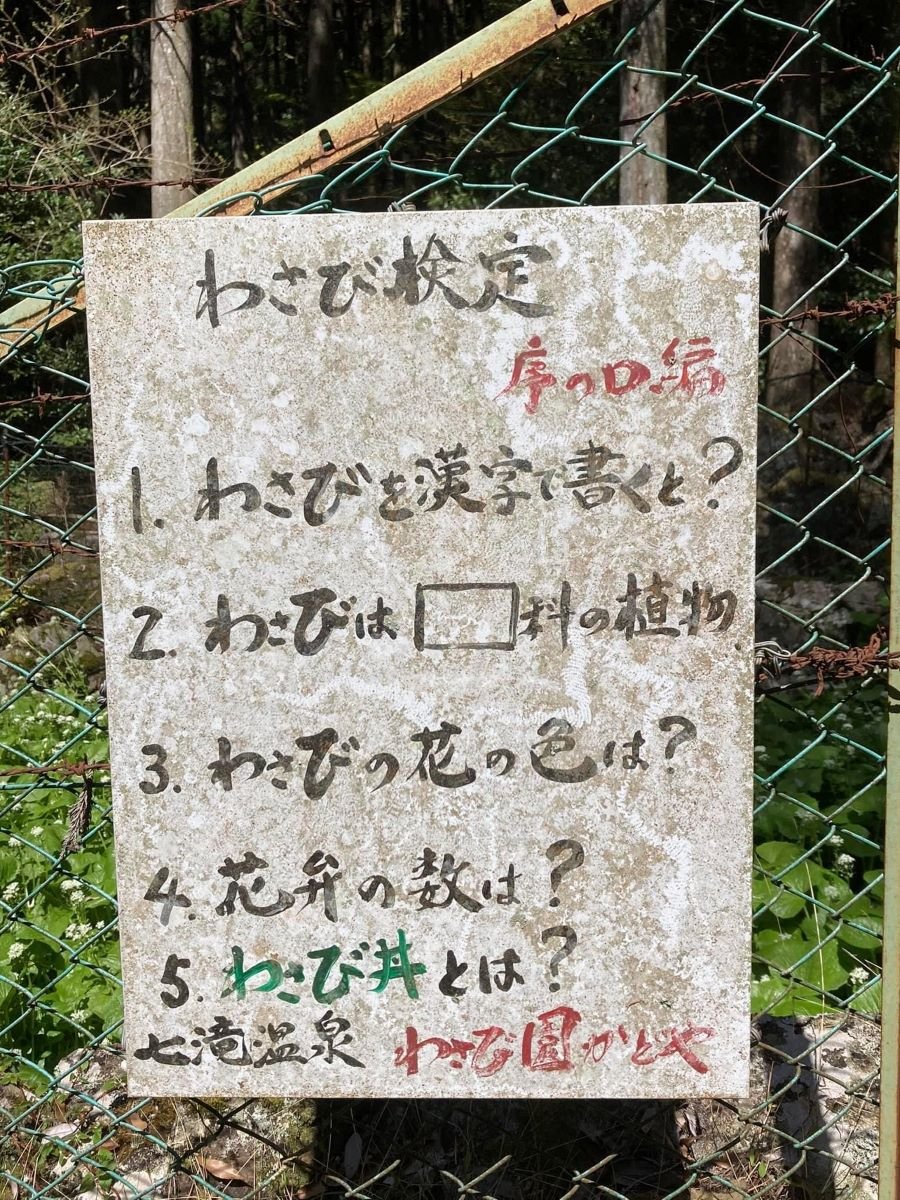 わさび検定
序の口編
1. わさびを漢字で書くと?
2. わさびは□科の植物
3. わさびの花の色は?
4. 花弁の数は?
5. わさび丼とは?
七滝温泉 わさび園かどや